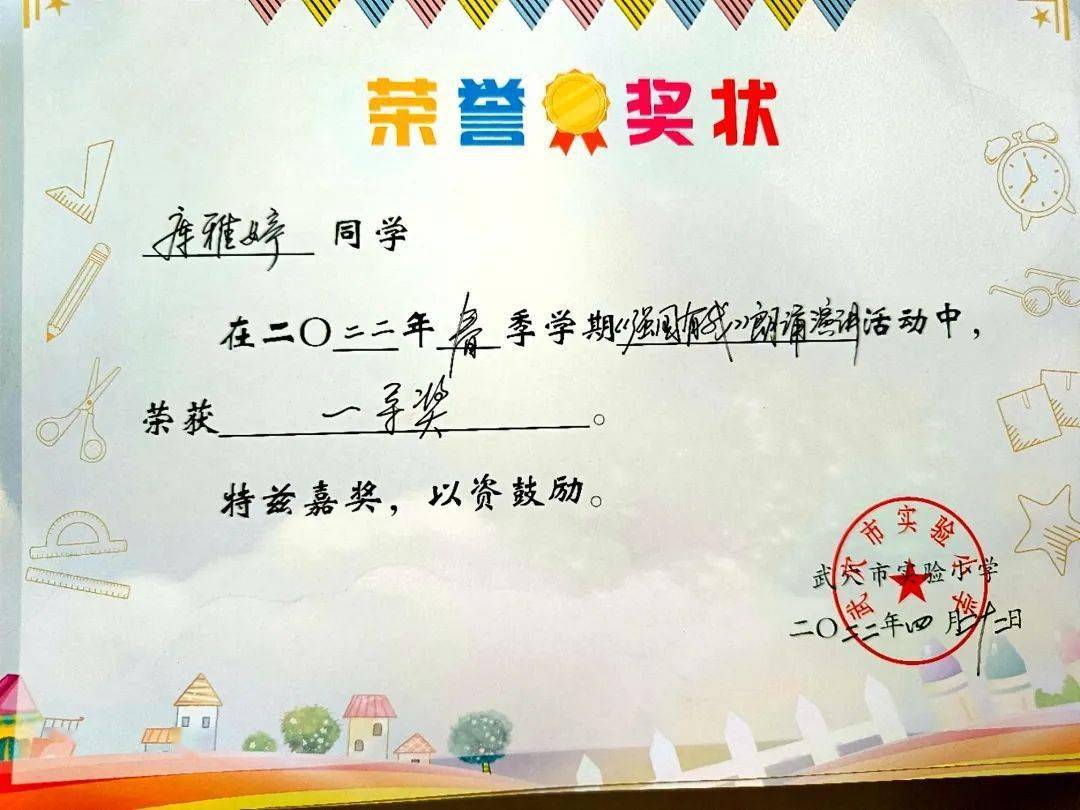 荣誉奖状
库雅婷 同学
在二〇二二年春季学期《强国有我》朗诵演讲活动中，
荣获一等奖。
特兹嘉奖，以资鼓励。
武穴市实验小学
武穴市实验小学
二〇二二年四月二十二日